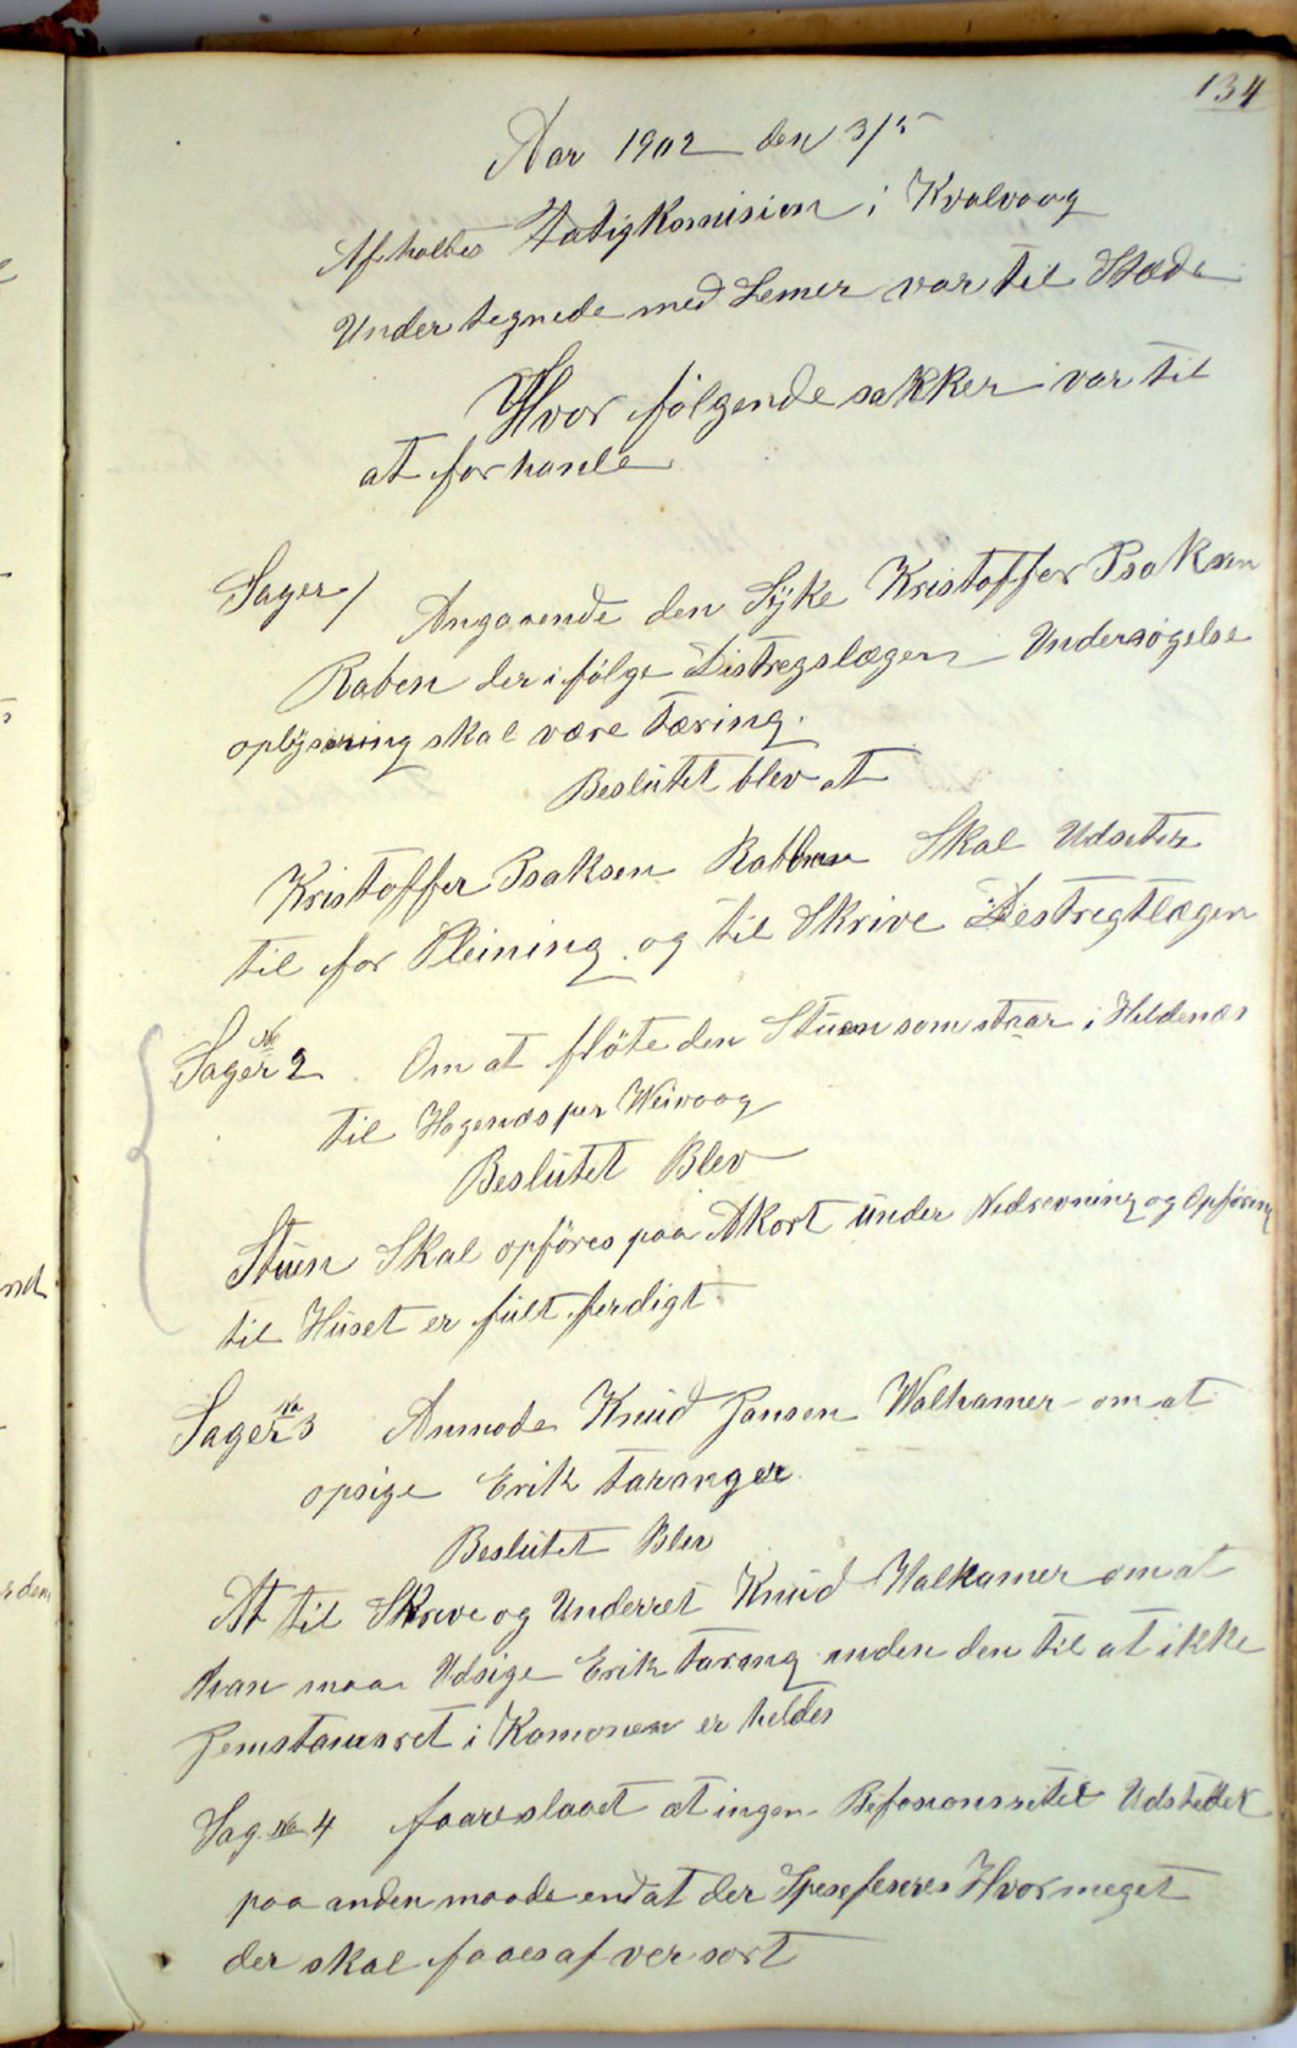 134
Aar 1902 den 3/5
Afholtes Fatigkomision i Kvalvaag
Undertegnede med Lemer var til Stæde
Hvor følgende sakker var til
at forhanle
Sager 1 Angaaende den Syke Kristoffer Isaksen
Raben der ifølge Distregslægen Undersøgelse
oplysning skal være tæring.
Beslutet blev at
Kristoffer Isaksen Rabben Skal Udseter
til for Pleining og til Skrive Destregtlægen
Sager No 2 Om at fløte den Stuen som staar i Hildenæs
til Hagenæs per Weivaag
Beslutet Blev
Stuen Skal opføres paa Akort under Nedrevning og Opføring
til Huset er fult ferdigt
Sager No 3 Anmode Knud Jansen Walhamer om at
opsige Erik Taranger
Beslutet Blev
At til Skrive og Underret Knud Walhamer om at
han maa Udsige Erik Tarang inden den til at ikke
i Komonen er heldes
Sag No 4 faareslaaet at ingen Udstedet
paa anden maade end at der Spesefeseres Hvor meget
der skal faaes af ver sort
nd
s den